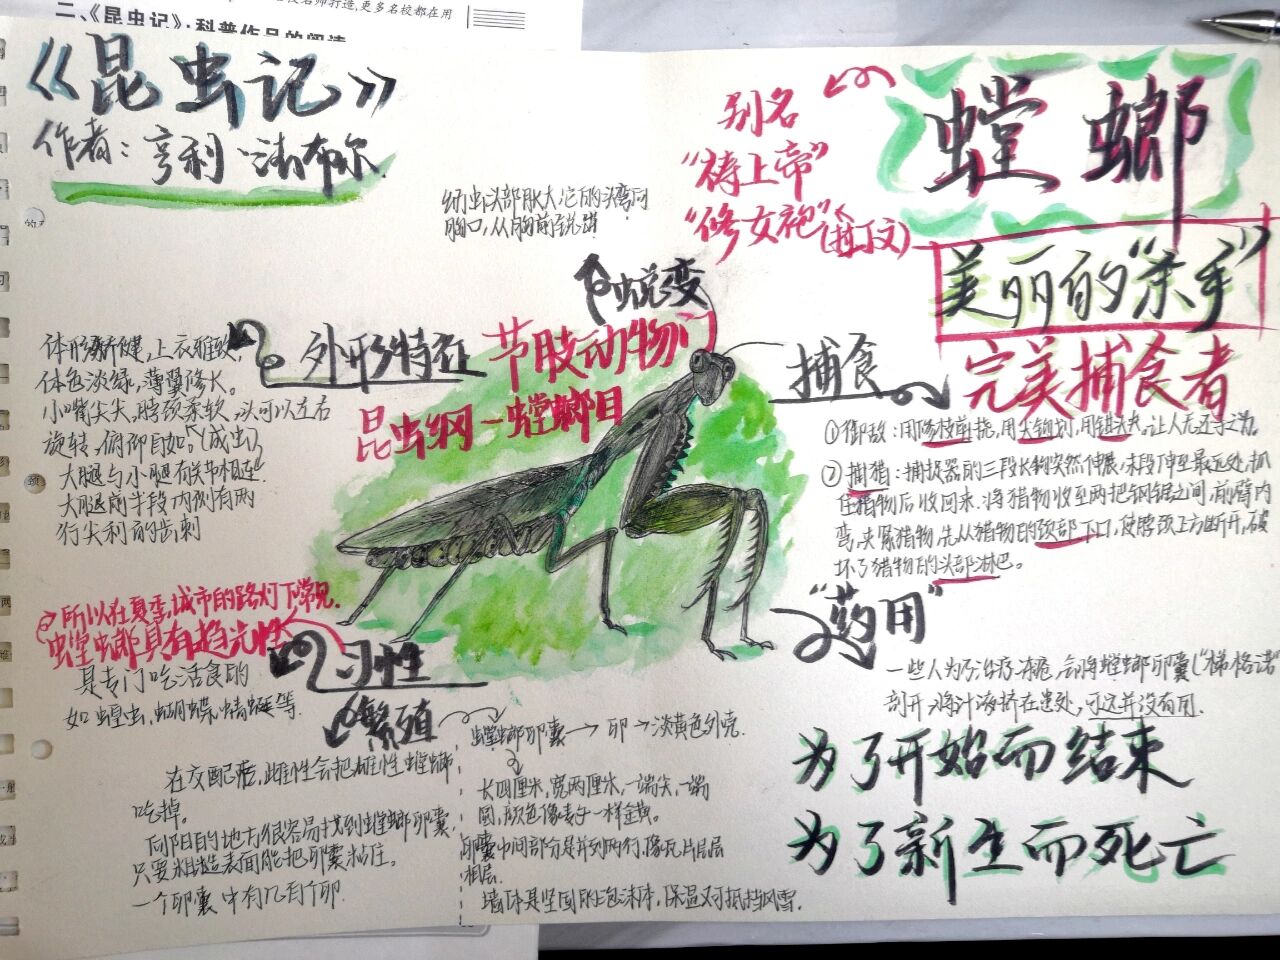 名师打造,更多名校都在用
二、《昆虫记》:科普作品的阅读
《昆虫记》
作者:亨利·法布尔
幼虫头部胀大,它的头弯向
胸口,从胸前蜕出
蜕变
别名
"祷上帝"
"修女袍"
(拉丁文)
螳螂
美丽的"杀手"
完美捕食者
外形特征
体形矫健,上衣雅致,
体色淡绿,薄翼修长。
小嘴尖尖,脖颈柔软,头可以左右
旋转,俯仰自如。(成虫)
大腿与小腿有关节相连
大腿前半段内侧有两
行尖利的齿刺
节肢动物门
昆虫纲-螳螂目
捕食
①御敌:用修枝剪挠,用尖钩划,用钳夹,让人无还手之力
②捕猎:捕捉器的三段长钩突然伸展,末段伸至最远处,抓
住猎物后收回来.将猎物收至两把钢锯之间,前臂内
弯,夹紧猎物,先从猎物的颈部下口,使脖颈上方断开,破
坏了猎物的头部淋巴。
"药用"
一些人为了治疗冻疮,会将螳螂卵囊("梯格诺"
剖开,将汁液挤在患处,可这并没有用.
所以在夏季,城市的路灯下常见.
螳螂具有趋光性
习性
是专门吃活食的
如蝗虫,蝴蝶,蜻蜓等.
繁殖
在交配后,雌性会把雄性螳螂
吃掉。
向阳的地方很容易找到螳螂卵囊,
只要粗糙表面能把卵囊粘住。
一个卵囊中有几百个卵.
螳螂卵囊→卵→淡黄色外壳.
长四厘米,宽两厘米,一端尖,一端
圆,颜色像麦子一样金黄。
卵囊中间部分是并列两行,像瓦片层层
相层.
墙体是坚固的泡沫体,保温又可抵挡风雪.
为了开始而结束
为了新生而死亡